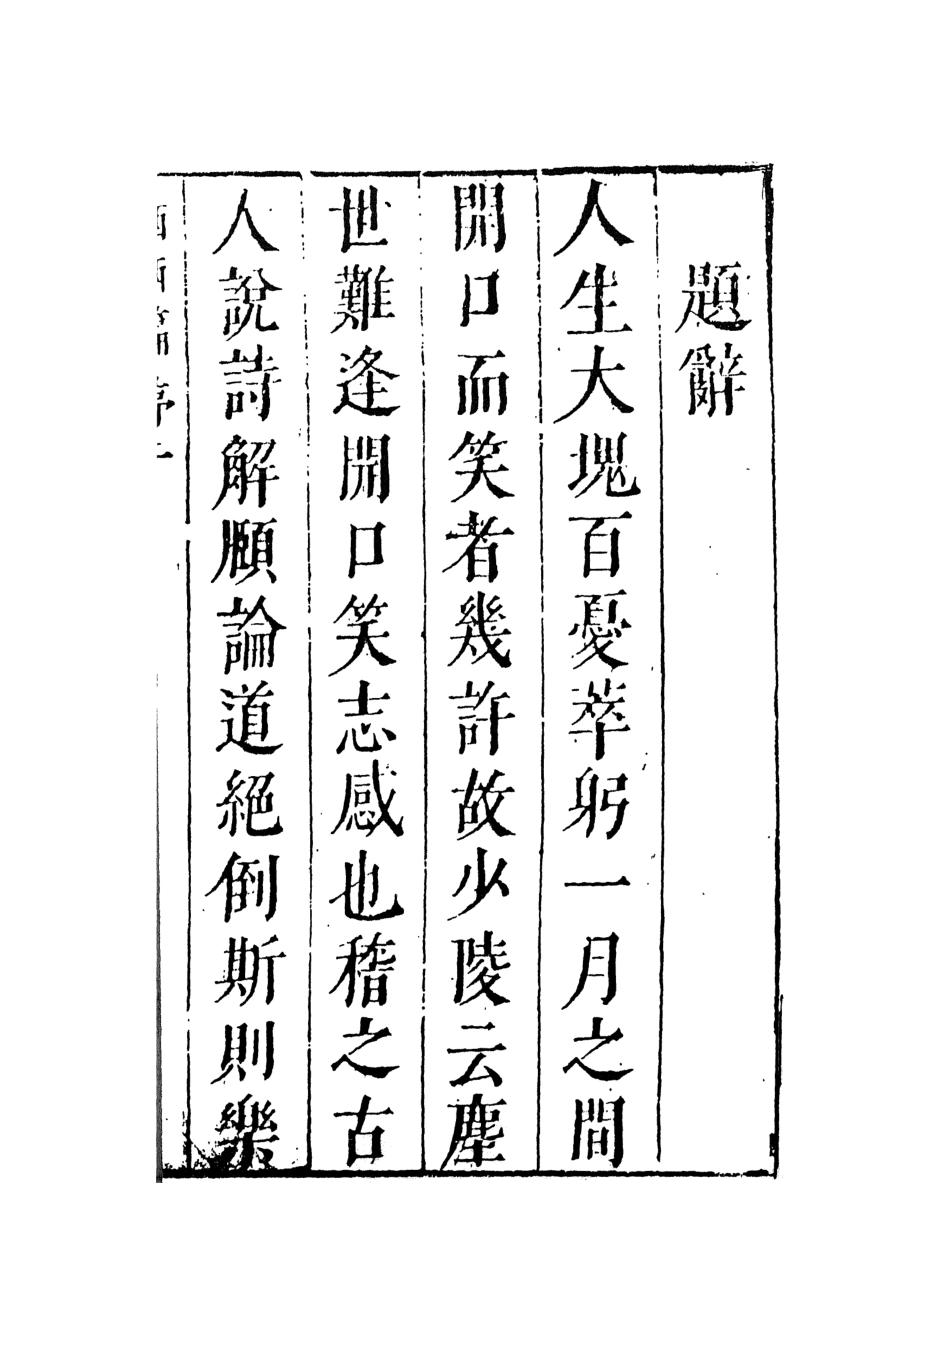 題辭
人生大塊百憂萃躬一月之間
開口而笑者幾許故少陵云塵
世難逢開口笑志感也稽之古
人說詩解頤論道絕倒斯則樂